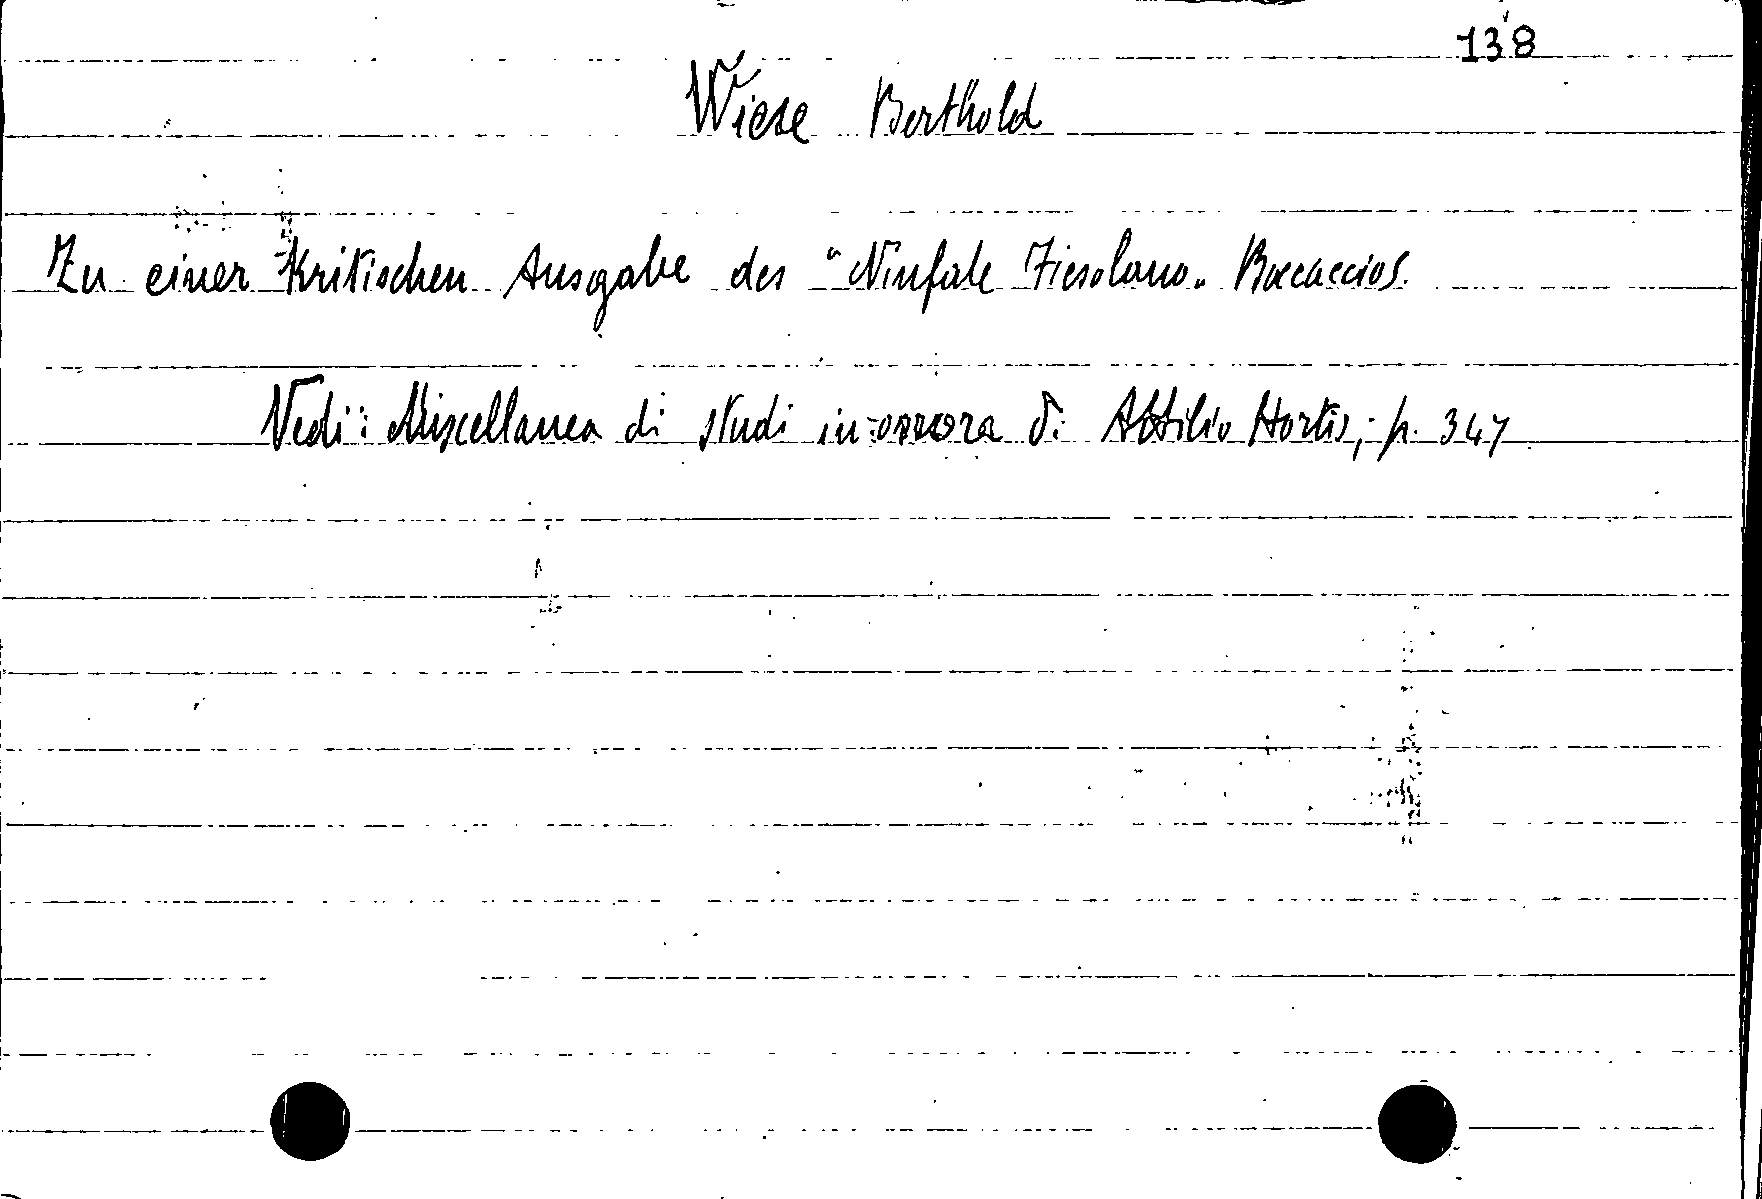 138
Wiese Berthold
Zu einer Kritischen Ausgabe des "Ninfale Fiesolano" Boccaccios.
Vedi: Miscellanea di studi in onora di Attilio Hortis; p. 347